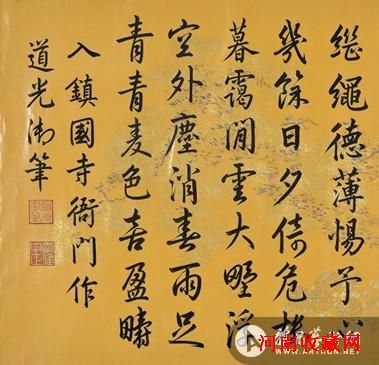 繼繩德薄惕予心
幾餘日夕倚危樓
暮靄閒雲大壄浮
空外塵消春雨足
青青麦色喜盈疇
入鎮國寺衙門作
道光御筆
河南收藏网
WWW.ARTRON.NET